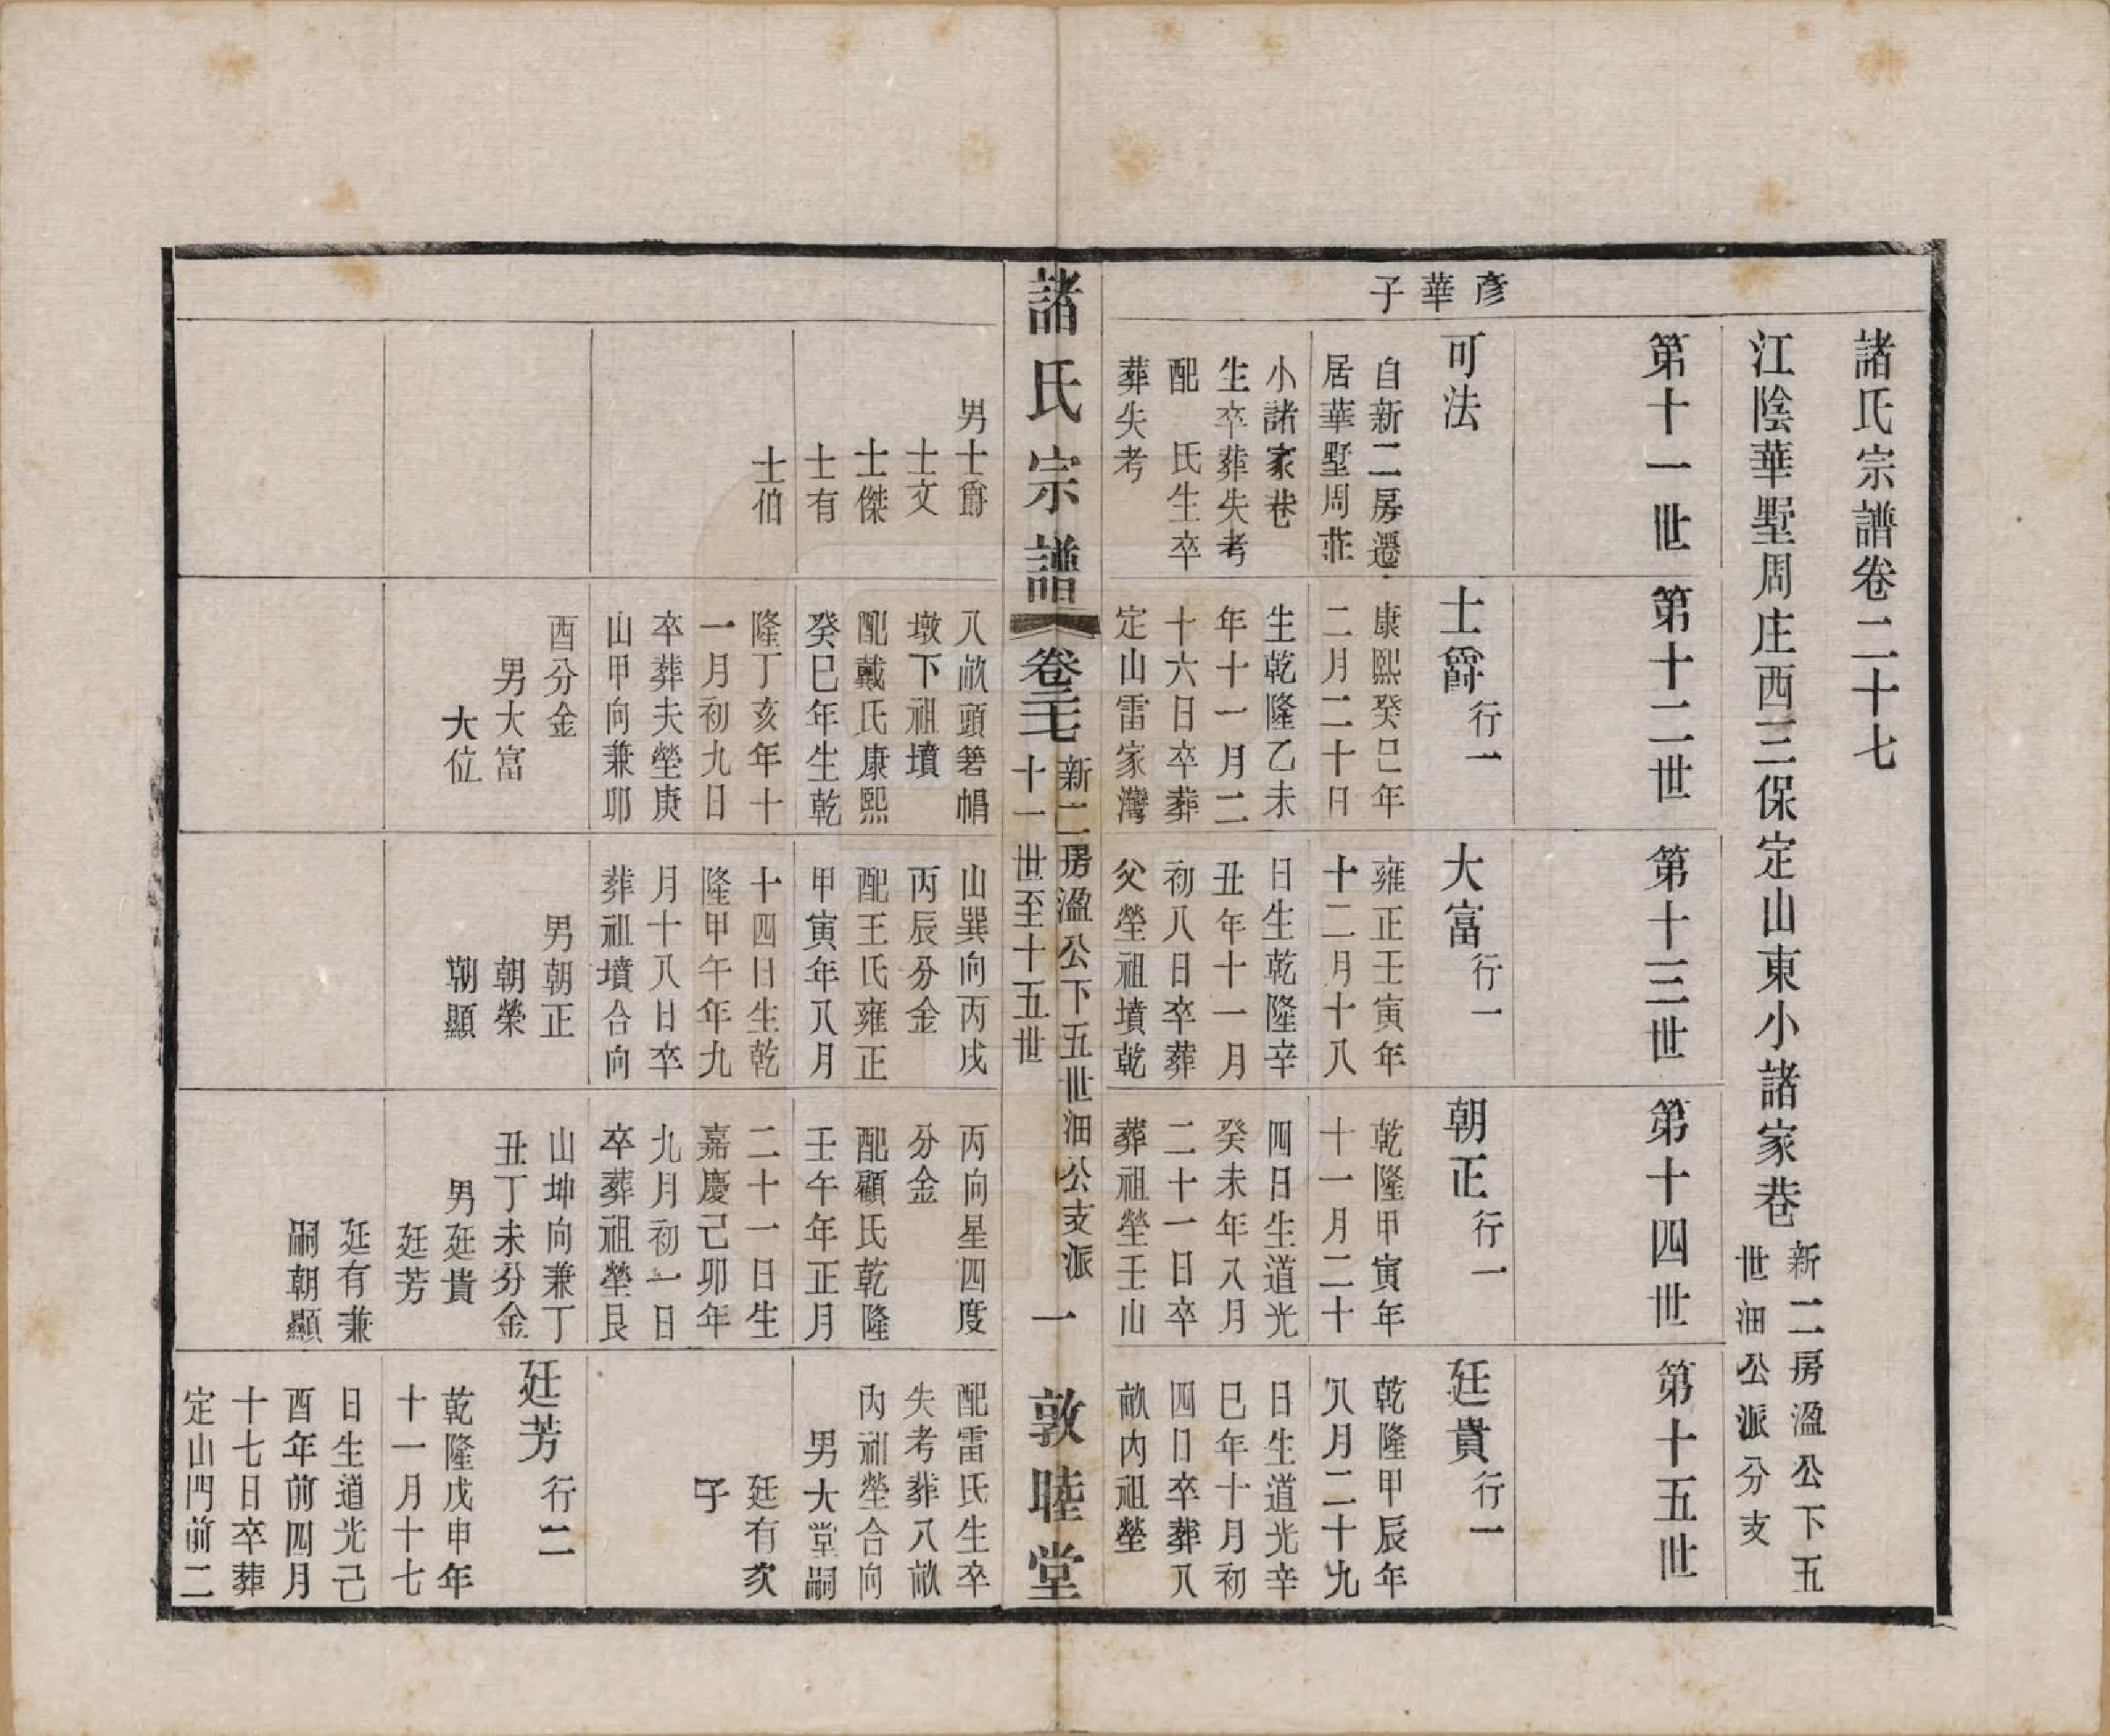 諸氏宗譜卷二十七
江陰華墅周庄西三保定山東小諸家巷
新二房溋公下五
世沺公派分支
彥華子
第十一世
可法
自新二房遷
居華墅周莊
小諸家巷
生卒葬失考
配　氏生卒
葬失考
男士爵
士文
士傑
士有
士伯
第十二世
士爵行一
康熙癸巳年
二月二十日
生乾隆乙未
年十一月二
十六日卒葬
定山雷家灣
八畝頭箬帽
墩下祖墳
配戴氏康熙
癸巳年生乾
隆丁亥年十
一月初九日
卒葬夫塋庚
山甲向兼卯
酉分金
男大富
大位
第十三世
大富行一
雍正壬寅年
十二月十八
日生乾隆辛
丑年十一月
初八日卒葬
父塋祖墳乾
山巽向丙戌
丙辰分金
配王氏雍正
甲寅年八月
十四日生乾
隆甲午年九
月十八日卒
葬祖墳合向
男朝正
朝榮
朝顯
第十四世
朝正行一
乾隆甲寅年
十一月二十
四日生道光
癸未年八月
二十一日卒
葬祖塋壬山
丙向星四度
分金
配顧氏乾隆
壬午年正月
二十一日生
嘉慶己卯年
九月初一日
卒葬祖塋艮
山坤向兼丁
丑丁未分金
男廷貴
廷芳
廷有兼
嗣朝顯
第十五世
廷貴行一
乾隆甲辰年
八月二十九
日生道光辛
巳年十月初
四日卒葬八
畝內祖塋
配雷氏生卒
失考葬八畝
內祖塋合向
男大堂嗣
廷有次
子
廷芳行二
乾隆戊申年
十一月十七
日生道光己
酉年前四月
十七日卒葬
定山門前二
諸氏宗譜
卷二七
新二房溋公下五世沺公支派
十一世至十五世
一
敦睦堂